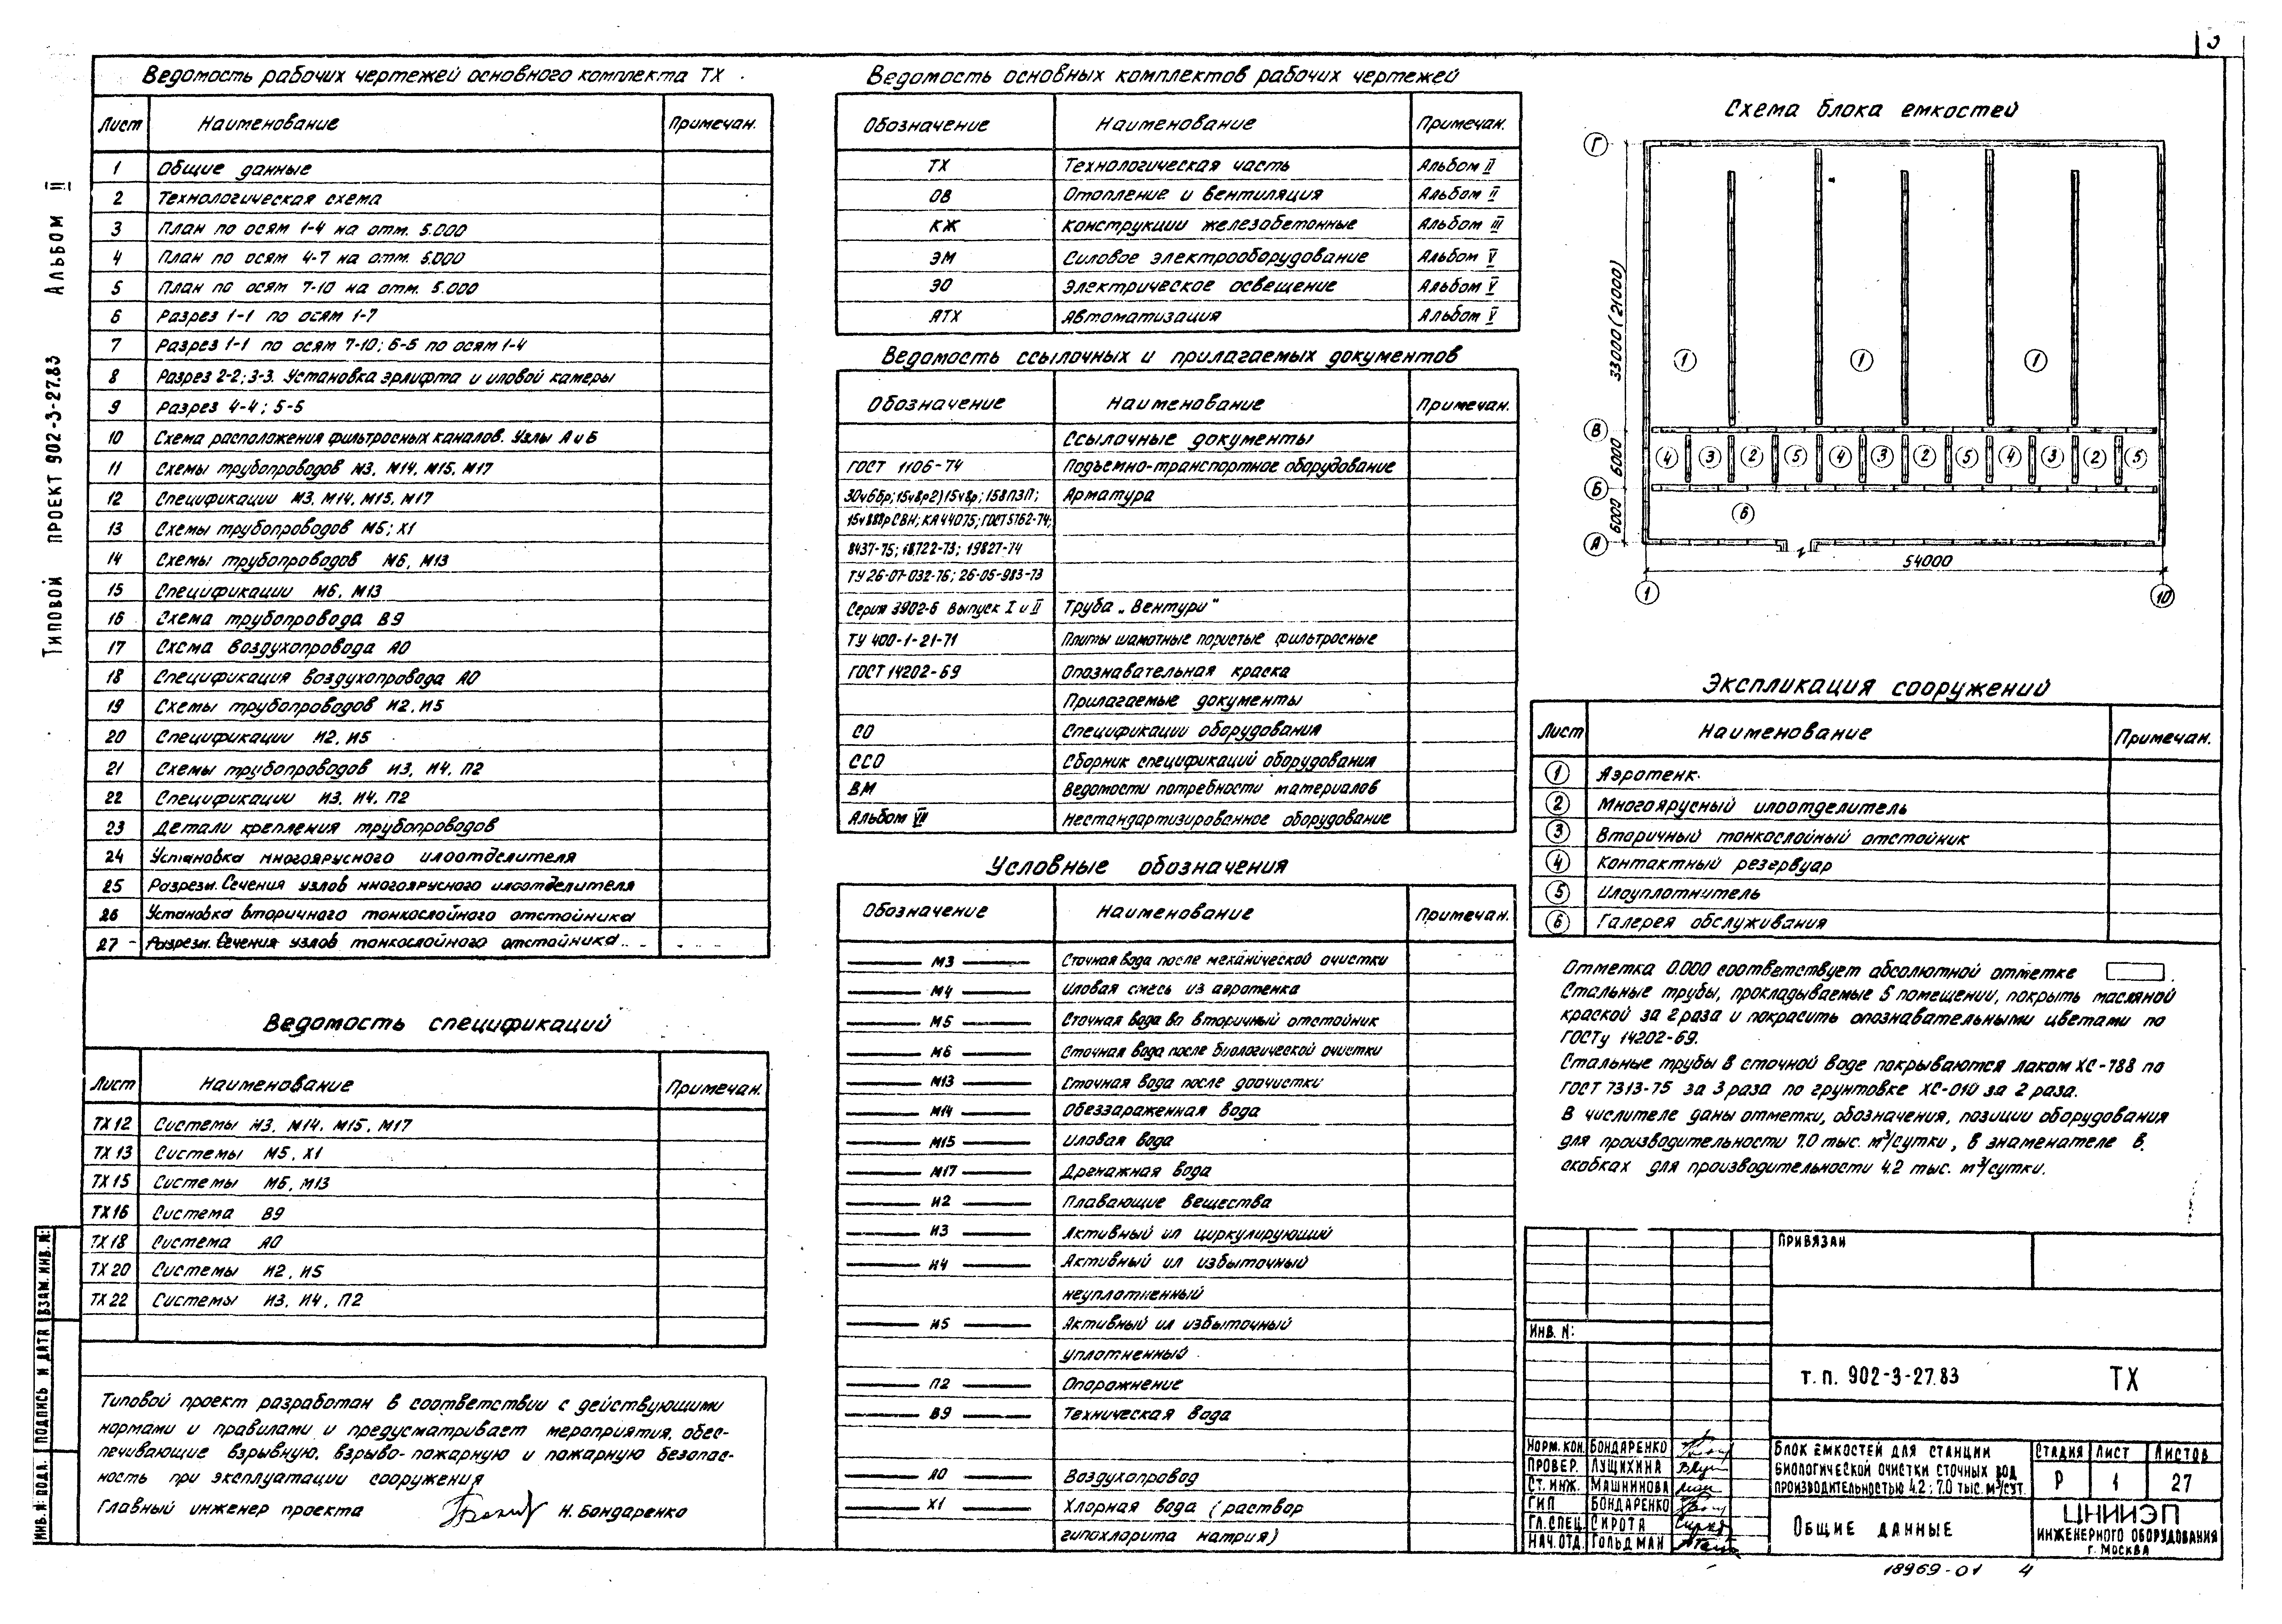 Типовой проект 902-3-27.83 Альбом II
Ведомость рабочих чертежей основного комплекта ТХ
Лист Наименование Примечан.
1 Общие данные
2 Технологическая схема
3 План по осям 1-4 на отм. 5.000
4 План по осям 4-7 на отм. 5.000
5 План по осям 7-10 на отм. 5.000
6 Разрез 1-1 по осям 1-7
7 Разрез 1-1 по осям 7-10; 6-6 по осям 1-4
8 Разрез 2-2; 3-3. Установка эрлифта и иловой камеры
9 Разрез 4-4; 5-5
10 Схема расположения фильтросных каналов. Узлы А и Б
11 Схемы трубопроводов М3, М14, М15, М17
12 Спецификации М3, М14, М15, М17
13 Схемы трубопроводов М5; Х1
14 Схемы трубопроводов М6, М13
15 Спецификации М6, М13
16 Схема трубопровода В9
17 Схема воздухопровода А0
18 Спецификация воздухопровода А0
19 Схемы трубопроводов И2, И5
20 Спецификации И2, И5
21 Схемы трубопроводов И3, И4, П2
22 Спецификации И3, И4, П2
23 Детали крепления трубопроводов
24 Установка многоярусного илоотделителя
25 Разрезы. Сечения узлов многоярусного илоотделителя
26 Установка вторичного тонкослойного отстойника
27 Разрезы. Сечения узлов тонкослойного отстойника
Ведомость спецификаций
Лист Наименование Примечан.
ТХ 12 Системы М3, М14, М15, М17
ТХ 13 Системы М5, Х1
ТХ 15 Системы М6, М13
ТХ 16 Система В9
ТХ 18 Система А0
ТХ 20 Системы И2, И5
ТХ 22 Системы И3, И4, П2
Типовой проект разработан в соответствии с действующими
нормами и правилами и предусматривает мероприятия, обес-
печивающие взрывную, взрыво-пожарную и пожарную безопас-
ность при эксплуатации сооружения
Главный инженер проекта Н. Бондаренко
ИНВ. N: ПОДЛ. ПОДПИСЬ И ДАТА ВЗАМ. ИНВ. N:
Ведомость основных комплектов рабочих чертежей
Обозначение Наименование Примечан.
ТХ Технологическая часть Альбом II
ОВ Отопление и вентиляция Альбом II
КЖ Конструкции железобетонные Альбом III
ЭМ Силовое электрооборудование Альбом V
ЭО Электрическое освещение Альбом V
АТХ Автоматизация Альбом V
Ведомость ссылочных и прилагаемых документов
Обозначение Наименование Примечан.
Ссылочные документы
ГОСТ 1106-74 Подъемно-транспортное оборудование
30ч6бр; 15ч8р2) 15ч8р; 15В ПЗП; Арматура
15ч888рСВН; КА44075; ГОСТ 5762-74;
8437-75; 18722-73; 19827-74
ТУ 26-07-032-76; 26-05-983-73
Серия 3902-6 Выпуск I и II Труба „Вентури"
ТУ 400-1-21-71 Плиты шамотные пористые фильтросные
ГОСТ 14202-69 Опознавательная краска
Прилагаемые документы
СО Спецификации оборудования
ССО Сборник спецификаций оборудования
ВМ Ведомости потребности материалов
Альбом VII Нестандартизированное оборудование
Условные обозначения
Обозначение Наименование Примечан.
М3 Сточная вода после механической очистки
М4 Иловая смесь из аэротенка
М5 Сточная вода во вторичный отстойник
М6 Сточная вода после биологической очистки
М13 Сточная вода после доочистки
М14 Обеззараженная вода
М15 Иловая вода
М17 Дренажная вода
И2 Плавающие вещества
И3 Активный ил циркулирующий
И4 Активный ил избыточный
неуплотненный
И5 Активный ил избыточный
уплотненный
П2 Опорожнение
В9 Техническая вода
А0 Воздухопровод
Х1 Хлорная вода (раствор
гипохлорита натрия)
Схема блока емкостей
Г
33000 (21000)
1 1 1
В
6000
4 3 2 5 4 3 2 5 4 3 2 5
Б
6000
6
А
54000
1 10
Экспликация сооружений
Лист Наименование Примечан.
1 Аэротенк
2 Многоярусный илоотделитель
3 Вторичный тонкослойный отстойник
4 Контактный резервуар
5 Илоуплотнитель
6 Галерея обслуживания
Отметка 0.000 соответствует абсолютной отметке
Стальные трубы, прокладываемые в помещении, покрыть масляной
краской за 2 раза и покрасить опознавательными цветами по
ГОСТу 14202-69.
Стальные трубы в сточной воде покрываются лаком ХС-788 по
ГОСТ 7313-75 за 3 раза по грунтовке ХС-010 за 2 раза.
В числителе даны отметки, обозначения, позиции оборудования
для производительности 7.0 тыс. м³/сутки, в знаменателе в
скобках для производительности 4.2 тыс. м³/сутки.
ПРИВЯЗАН
ИНВ. N:
Т. П. 902-3-27.83 ТХ
НОРМ. КОН. БОНДАРЕНКО
ПРОВЕР. ЛУЩИХИНА
СТ. ИНЖ. МАШНИНОВА
ГИП БОНДАРЕНКО
ГЛ. СПЕЦ. СИРОТА
НАЧ. ОТД. ГОЛЬДМАН
БЛОК ЕМКОСТЕЙ ДЛЯ СТАНЦИИ
БИОЛОГИЧЕСКОЙ ОЧИСТКИ СТОЧНЫХ ВОД
ПРОИЗВОДИТЕЛЬНОСТЬЮ 4.2; 7.0 ТЫС. М³/СУТ.
СТАДИЯ ЛИСТ ЛИСТОВ
Р 1 27
ОБЩИЕ ДАННЫЕ
ЦНИИЭП
ИНЖЕНЕРНОГО ОБОРУДОВАНИЯ
г. МОСКВА
18969-01 4